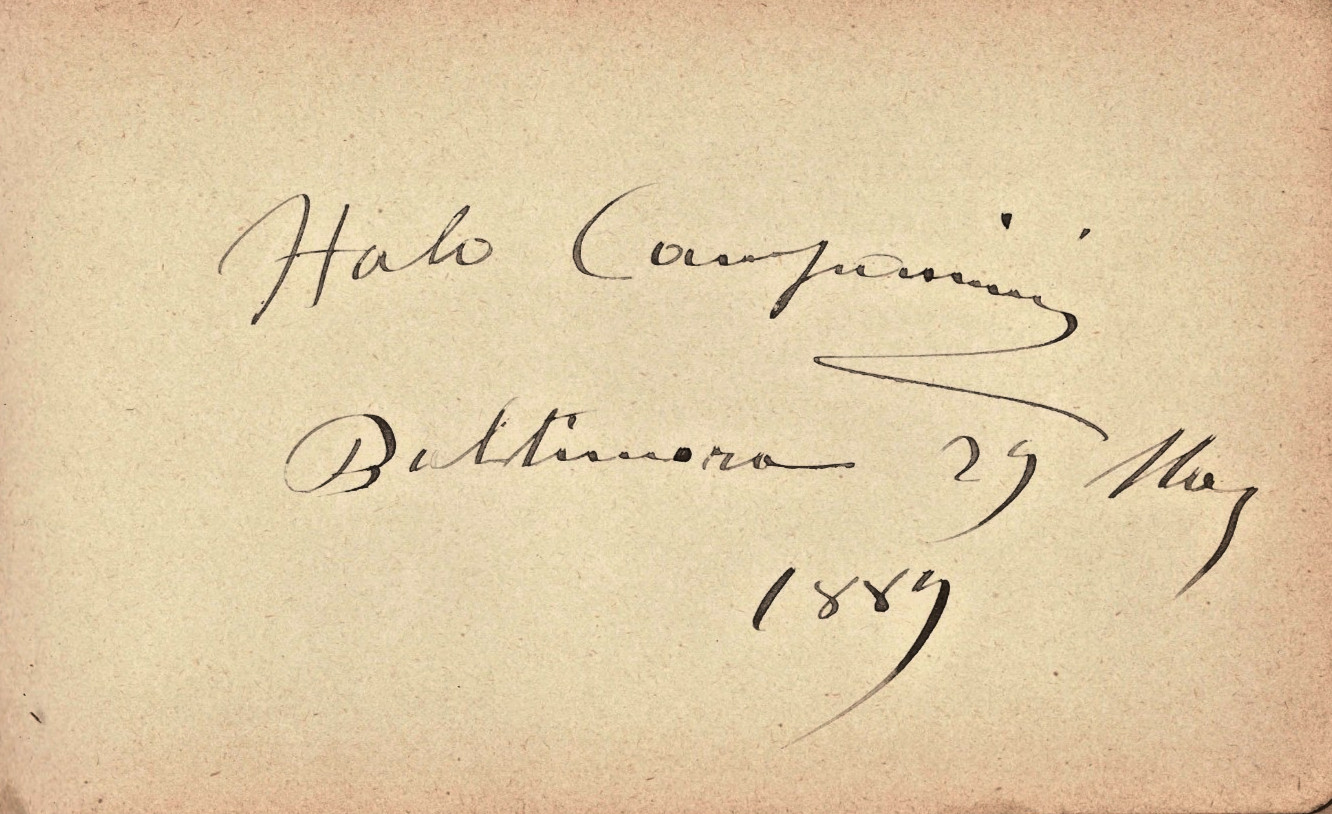 Italo Campanini
Baltimora 29 May
1889